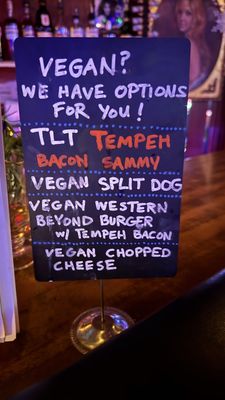 VEGAN?
WE HAVE OPTIONS
FOR YOU!
TLT TEMPEH
BACON SAMMY
VEGAN SPLIT DOG
VEGAN WESTERN
BEYOND BURGER
W/ TEMPEH BACON
VEGAN CHOPPED
CHEESE